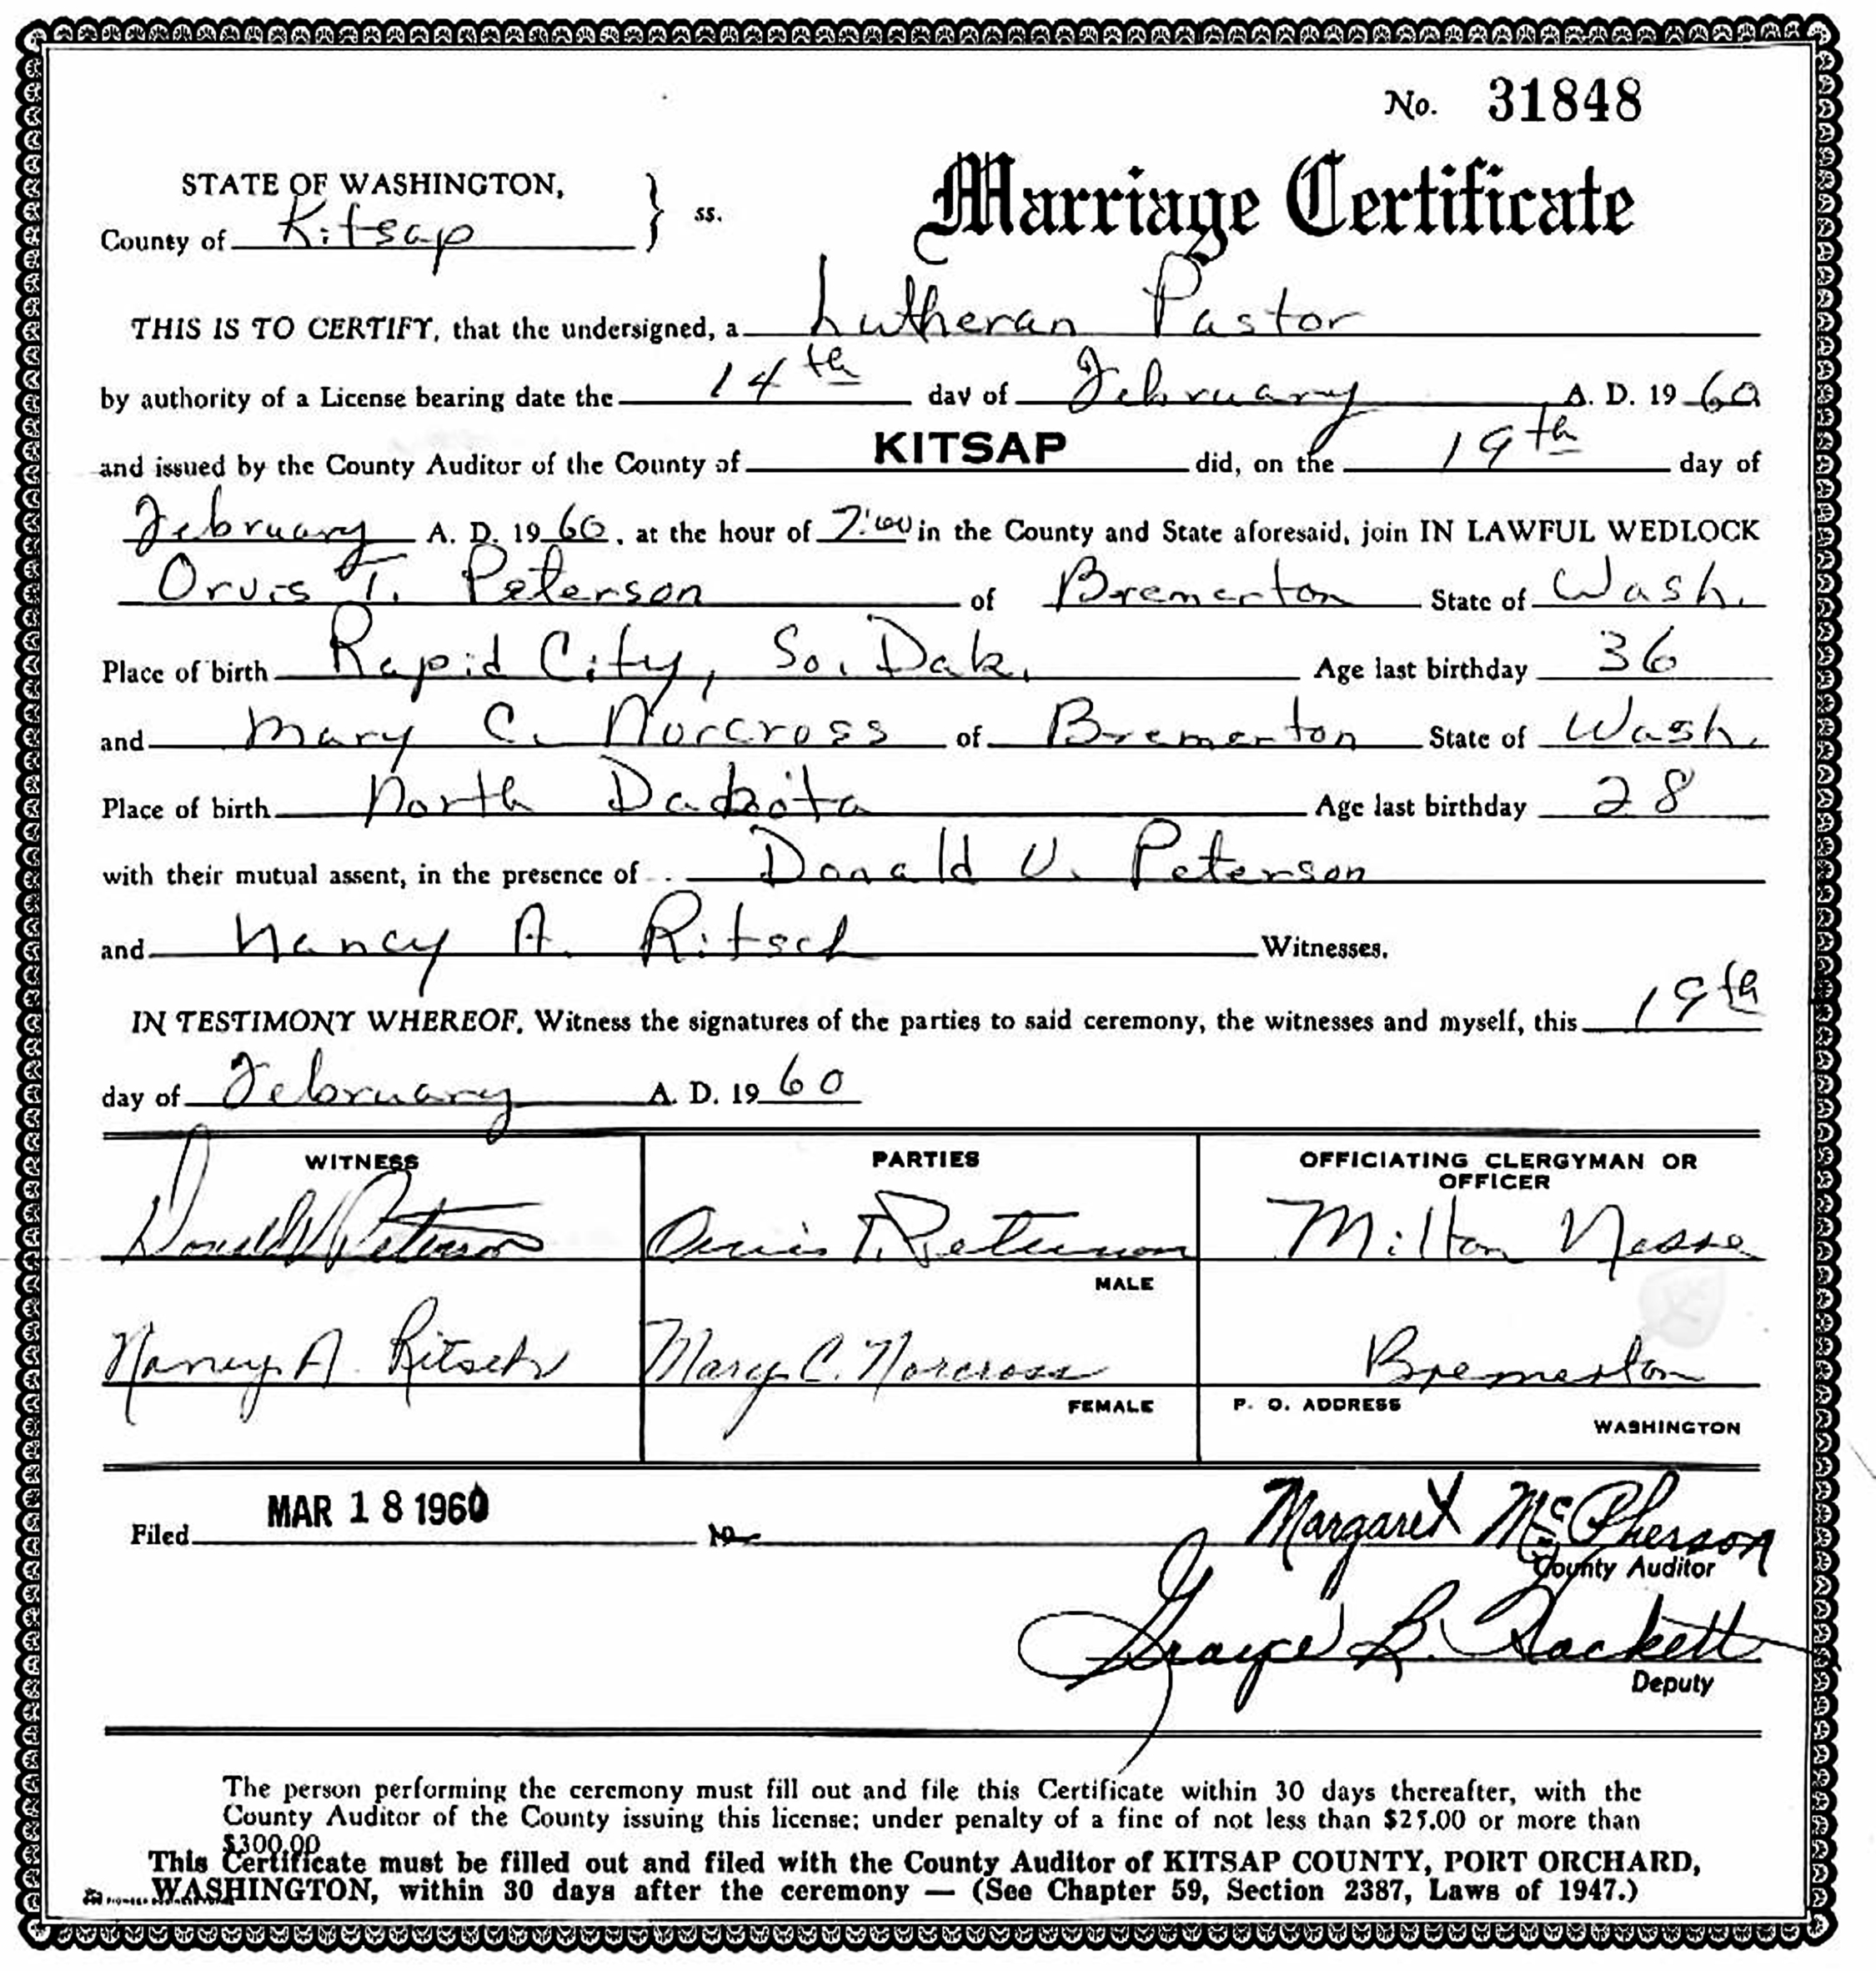 No. 31848
STATE OF WASHINGTON,
County of Kitsap } ss.
Marriage Certificate
THIS IS TO CERTIFY, that the undersigned, a Lutheran Pastor
by authority of a License bearing date the 14th day of February A. D. 19 60
and issued by the County Auditor of the County of KITSAP did, on the 19th day of
February A. D. 19 60, at the hour of 7:00 in the County and State aforesaid, join IN LAWFUL WEDLOCK
Orvis T. Peterson of Bremerton State of Wash.
Place of birth Rapid City, So. Dak. Age last birthday 36
and Mary C. Norcross of Bremerton State of Wash.
Place of birth North Dakota Age last birthday 28
with their mutual assent, in the presence of Donald V. Peterson
and Nancy A. Ritsch Witnesses.
IN TESTIMONY WHEREOF, Witness the signatures of the parties to said ceremony, the witnesses and myself, this 19th
day of February A. D. 19 60
WITNESS
Donald V Peterson
Nancy A. Ritsch
PARTIES
Orvis T. Peterson
MALE
Mary C. Norcross
FEMALE
OFFICIATING CLERGYMAN OR
OFFICER
Milton Nesse
Bremerton
P. O. ADDRESS
WASHINGTON
Filed MAR 18 1960 19
Margaret McPherson
County Auditor
Grayce B. Hackett
Deputy
The person performing the ceremony must fill out and file this Certificate within 30 days thereafter, with the
County Auditor of the County issuing this license; under penalty of a fine of not less than $25.00 or more than
$300.00
This Certificate must be filled out and filed with the County Auditor of KITSAP COUNTY, PORT ORCHARD,
WASHINGTON, within 30 days after the ceremony — (See Chapter 59, Section 2387, Laws of 1947.)